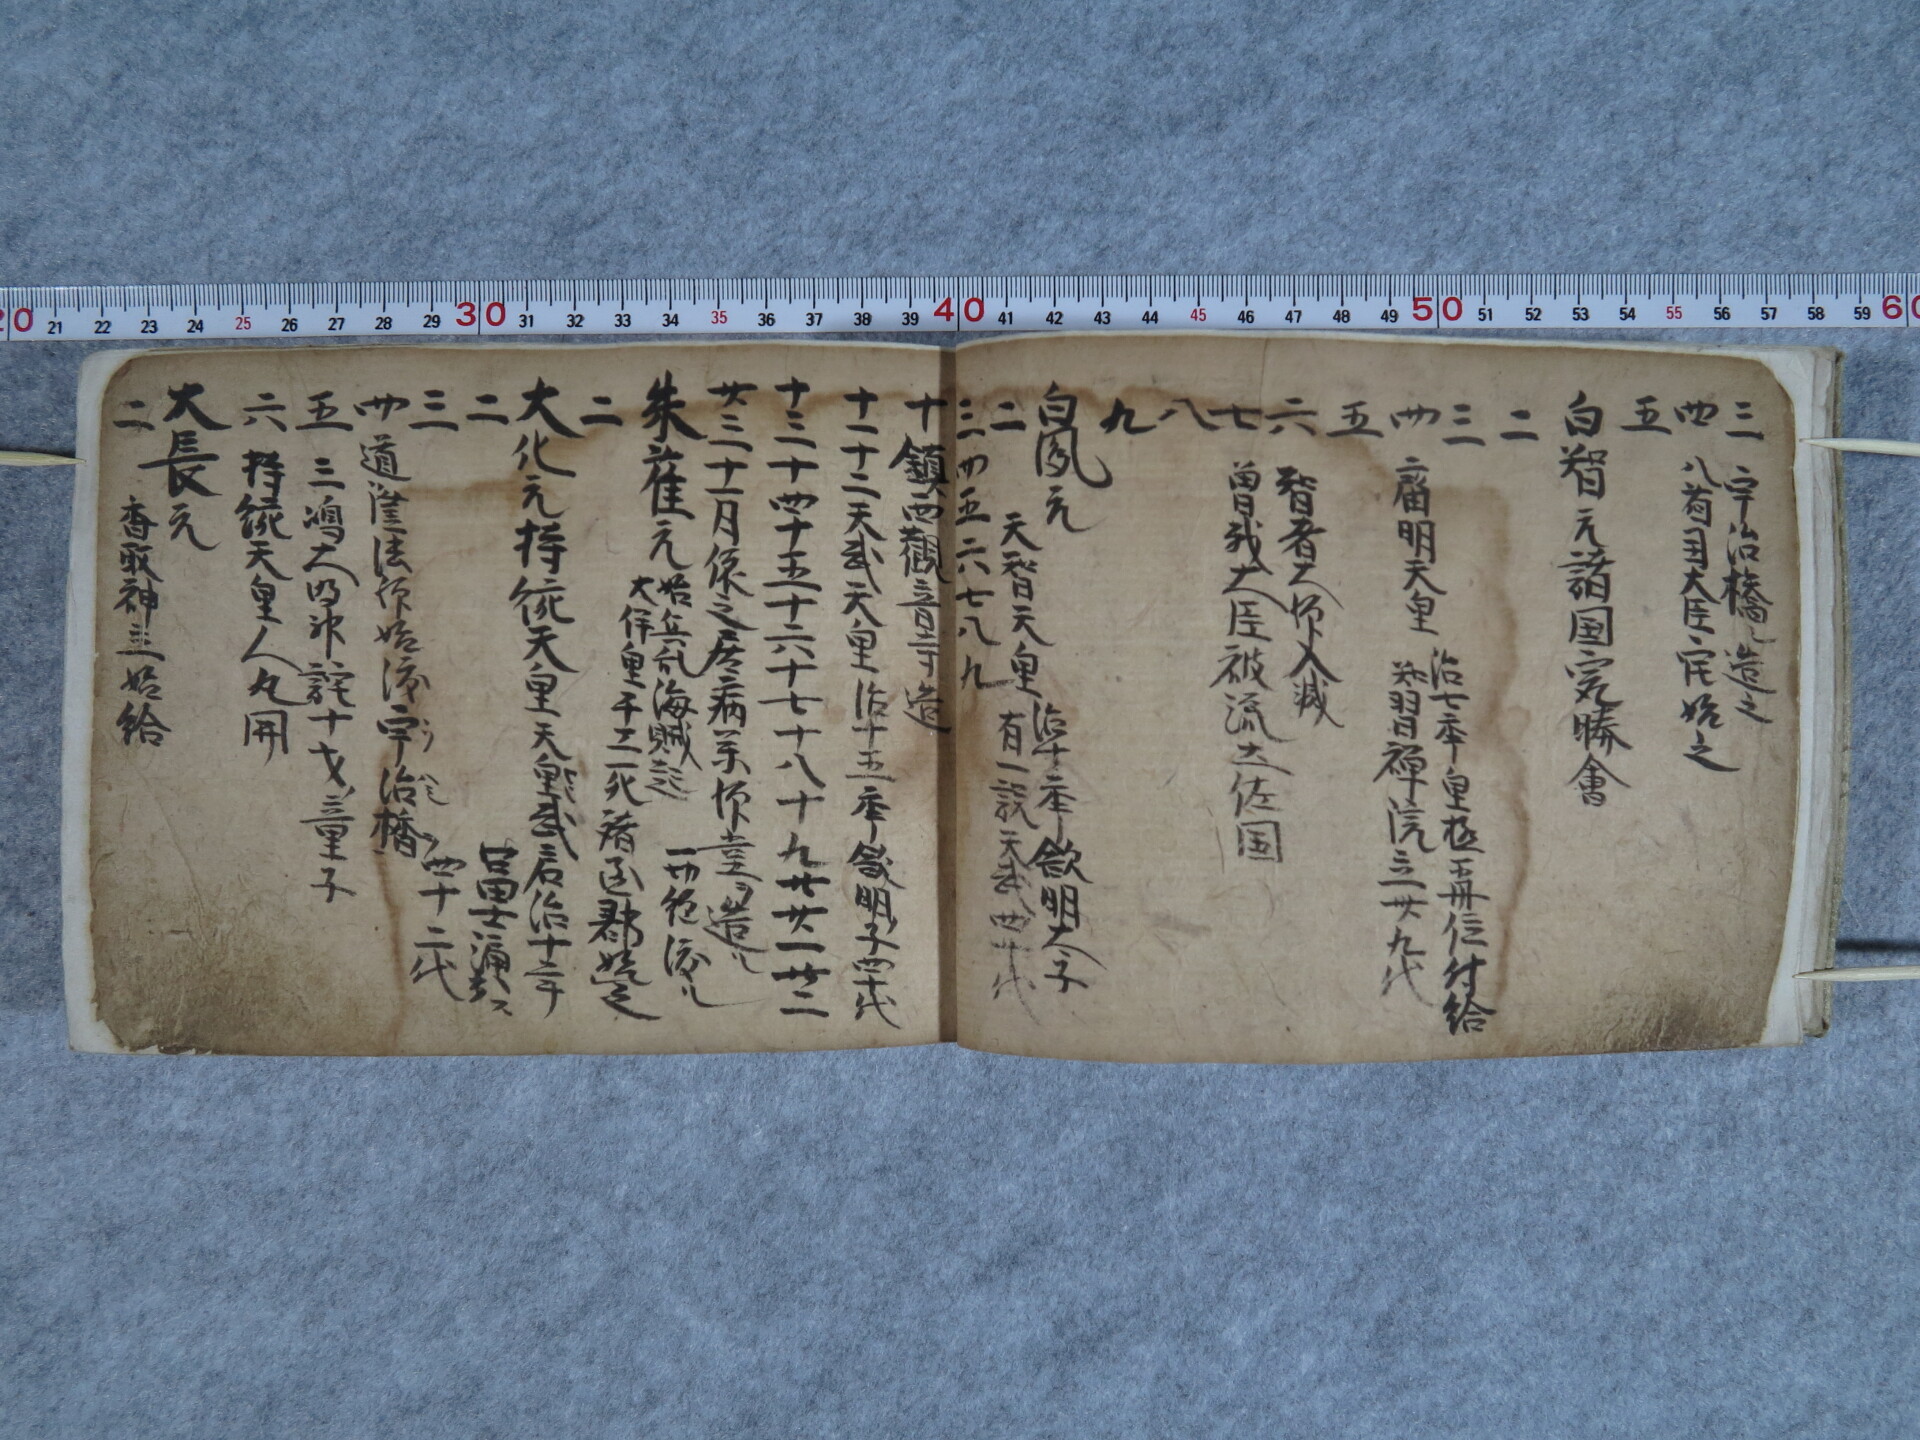 20 21 22 23 24 25 26 27 28 29 30 31 32 33 34 35 36 37 38 39 40 41 42 43 44 45 46 47 48 49 50 51 52 53 54 55 56 57 58 59 60
三 宇治橋造之
四 八省
大臣 始之
五
白智元 諸国 勝會
二
三
四 齊明天皇 治七年皇極再位付給
智習禅院立 卅九代
五
六 智者大师入滅
七 曽我大臣被流土佐国
八
九
白鳳元 天智天皇 治十年 欽明太子
二 有一説天武四十代
三 四 五 六 七 八 九
十 鎮西観音寺造
十一 十二 天武天皇 治十五年 欽明子 四十代
十三 十四 十五 十六 十七 十八 十九 廿 廿一 廿二
廿三 十一月 依之居病 薬师堂ヲ造ル
朱雀元 始兵乱海賊起 一切経渡ル
大伴皇子 死
二 諸国郡始定
大化元 持統天皇 天武后 治十年
二
三 四十二代
四 道 法师始渡宇治橋
五 三嶋大明神 詫十才童子
六 持統天皇人丸開
大長元
二 香取神主始給